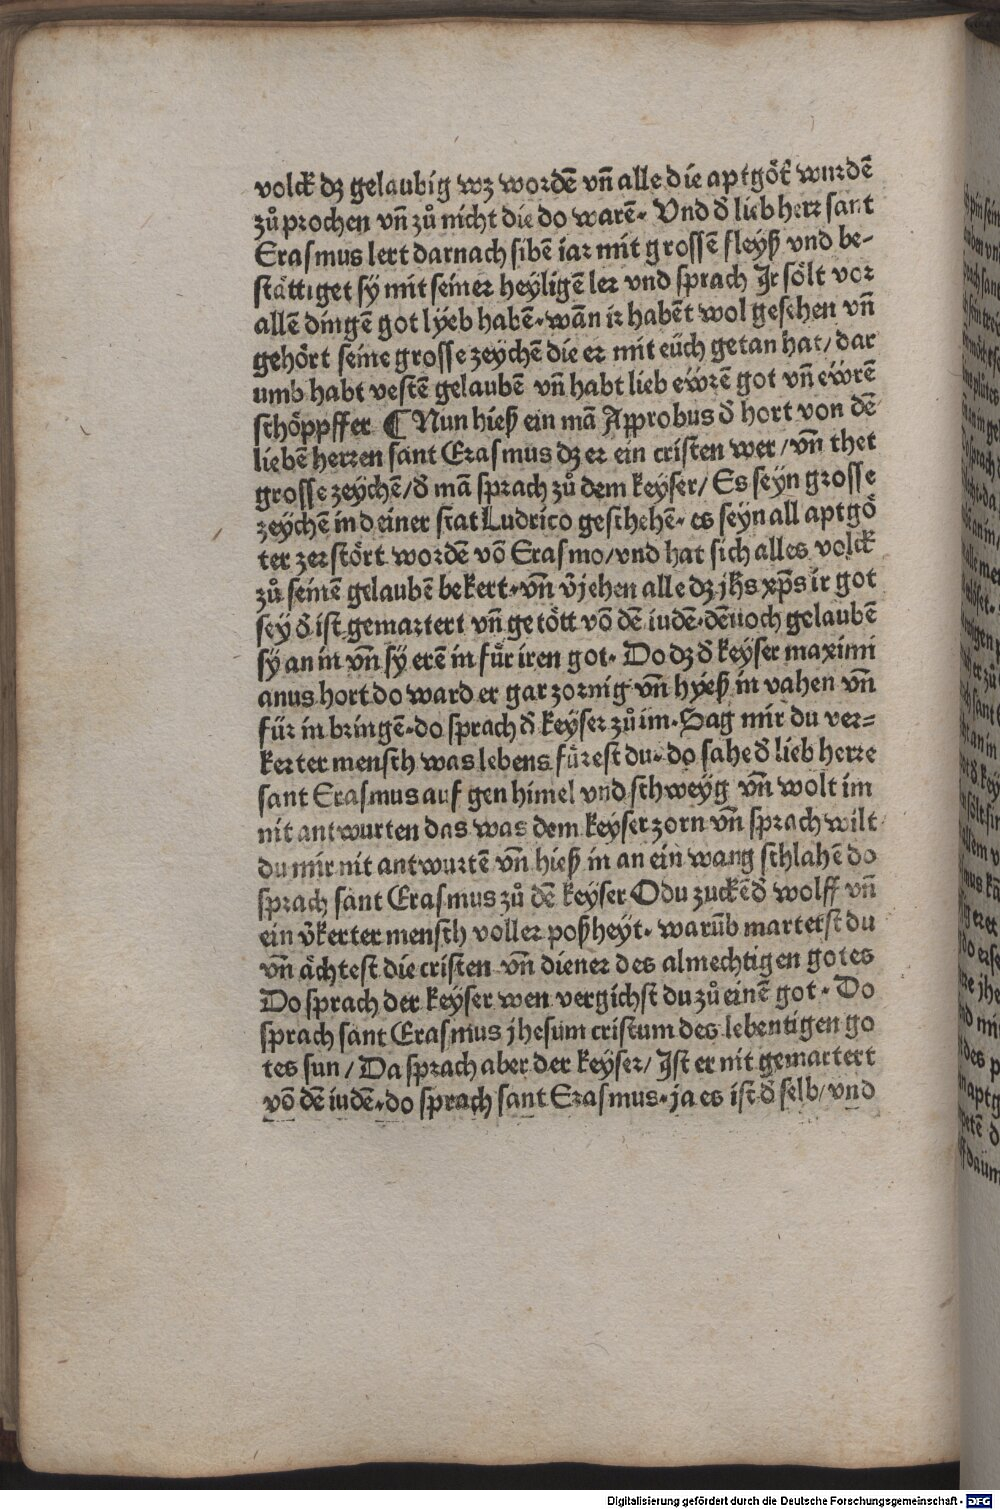 volck dz gelaubig wz wordē vn̄ alle die aptgöt̄ wurdē
zů prochen vn̄ zů nicht die do warē. Vnd d̄ lieb herr sant
Erasmus lert darnach sibē iar mit grossē fleyß vnd be-
stättiget sy mit seiner heyligē ler vnd sprach Ir sölt vor
allē dingē got lyeb habē. wān ir habēt wol gesehen vn̄
gehört seine grosse zeychē die er mit eüch getan hat/ dar
umb habt vestē gelaubē vn̄ habt lieb ewrē got vn̄ ewrē
schöppffer ¶ Nun hieß ein mā Approbus d̄ hort von dē
liebē herren sant Erasmus dz er ein cristen wer/ vn̄ thet
grosse zeychē/ d̄ mā sprach zů dem keyser/ Es seyn grosse
zeychē in deiner stat Ludrico geschehē. es seyn all aptgö
ter zerstört wordē vō Erasmo/ vnd hat sich alles volck
zů seinē gelaubē bekert. vn̄ v̄jehen alle dz jhs xp̄s ir got
sey d̄ ist gemartert vn̄ getött vō dē iudē. dēnoch gelaubē
sy an in vn̄ sy erē in für iren got. Do dz d̄ keyser maximi
anus hort do ward er gar zornig vn̄ hyeß in vahen vn̄
für in bringē. do sprach d̄ keyser zů im. Sag mir du ver=
kerter mensch was lebens fürest du. do sahe d̄ lieb herre
sant Erasmus auf gen himel vnd schweyg vn̄ wolt im
nit antwurten das was dem keyser zorn vn̄ sprach wilt
du mir nit antwurtē vn̄ hieß in an ein wang schlahē do
sprach sant Erasmus zů dē keyser O du zuckēd̄ wolff vn̄
ein v̄kerter mensch voller poßheyt. warūb marterst du
vn̄ ächtest die cristen vn̄ diener des almechtigen gotes
Do sprach der keyser wen vergichst du zů einē got. Do
sprach sant Erasmus jhesum cristum des lebentigen go
tes sun/ Da sprach aber der keyser/ Ist er nit gemartert
vō dē iudē. do sprach sant Erasmus. ja es ist d̄ selb/ vnd
Digitalisierung gefördert durch die Deutsche Forschungsgemeinschaft - DFG